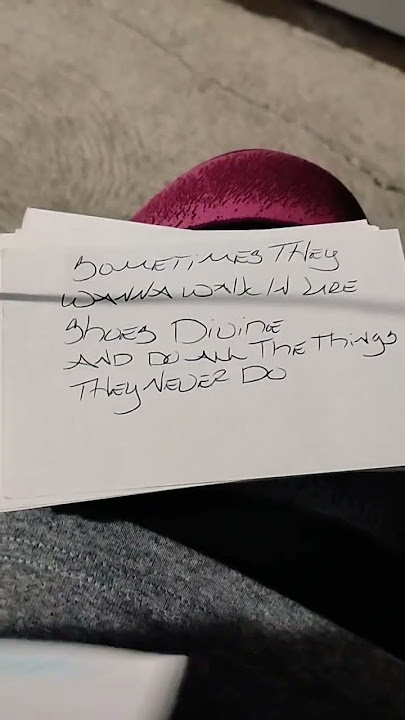 SOMETIMES THEY
WANNA WALK IN
SHOES DIVINE
AND DO ALL THE THINGS
THEY NEVER DO